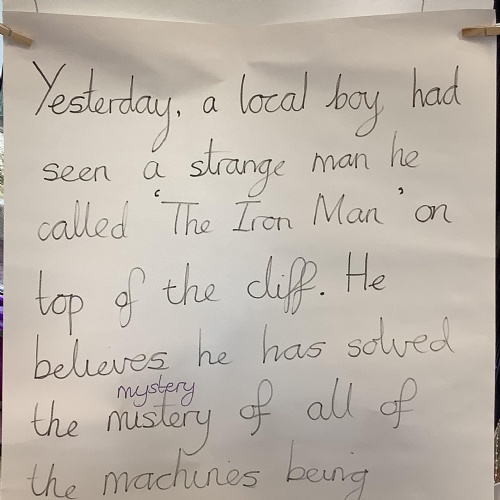 Yesterday, a local boy had
seen a strange man he
called 'The Iron Man' on
top of the cliff. He
believes he has solved
mystery
the mistery of all of
the machines being